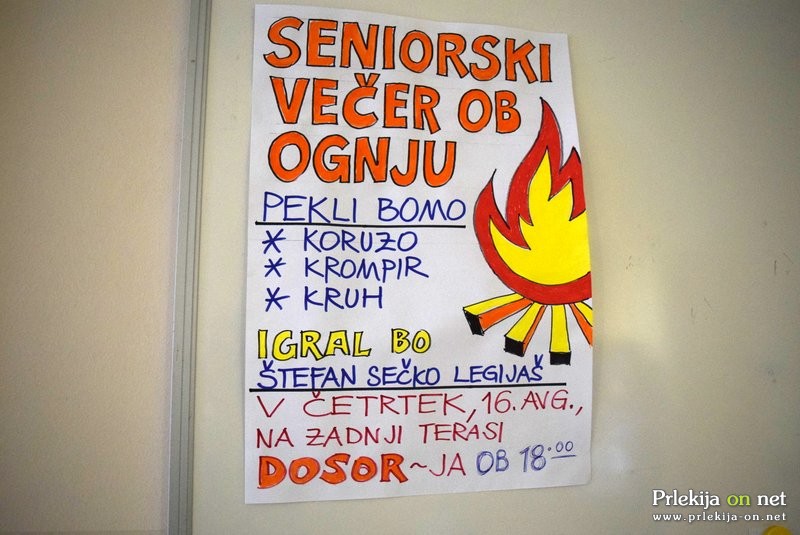 SENIORSKI
VEČER OB
OGNJU
PEKLI BOMO
* KORUZO
* KROMPIR
* KRUH
IGRAL BO
ŠTEFAN SEČKO LEGIJAŠ
V ČETRTEK, 16. AVG.,
NA ZADNJI TERASI
DOSOR~JA OB 18.00
Prlekija on net
www.prlekija-on.net